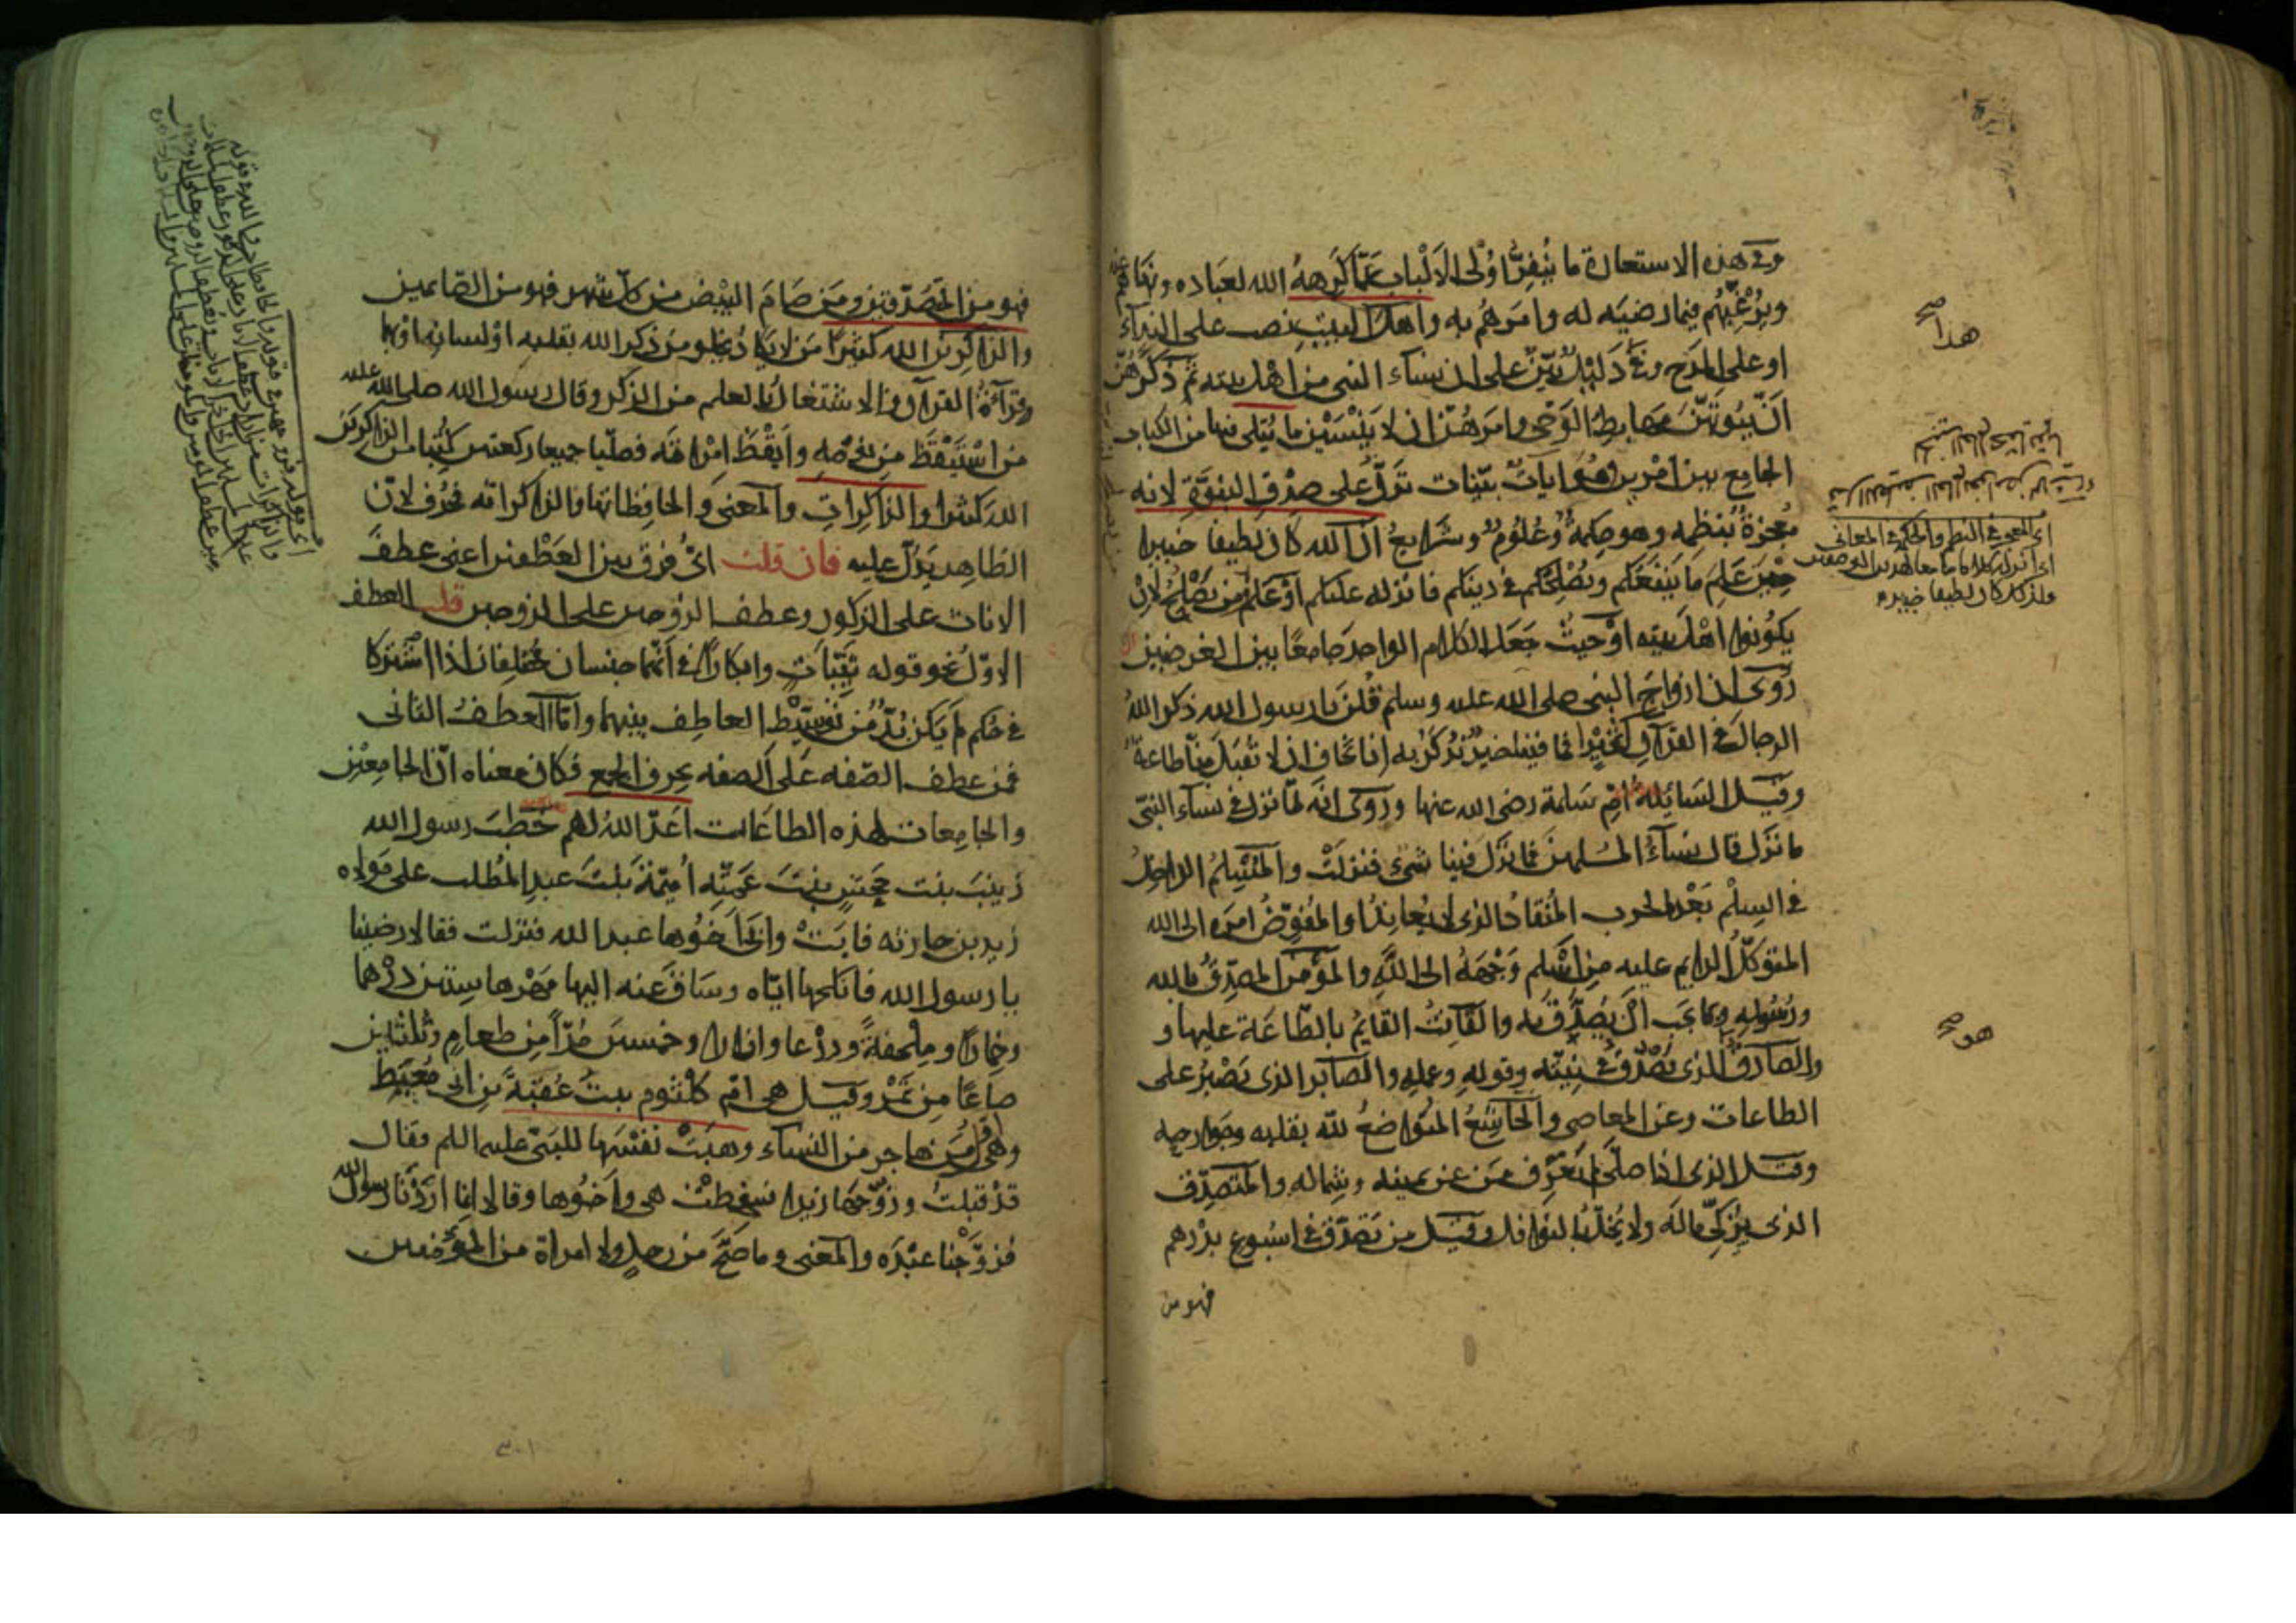 وفي هذه الاستعارة ما ينفر اولي الالباب عما كرهه الله لعباده ونهاهم عنه
ويرغبهم فيما رضيه له وامرهم به واهل البيت نصب على النداء
او على المدح وفي هذا دليل بين على ان نساء النبي من اهل بيته ثم ذكرهن
ان بيوتهن مهابط الوحي وامرهن ان لا ينسين ما يتلى فيها من الكتاب
الجامع بين امرين هو ايات بينات تدل على صدق النبوة لانه
معجزة بنظمه وهو حكمة وعلوم وشرايع ان الله كان لطيفا خبيرا
حين علم ما ينفعكم ويصلحكم في دينكم فانزله عليكم او علم من يصلح لان
يكونوا اهل بيته او حيث جعل الكلام الواحد جامعا بين الغرضين
روي ان ازواج النبي صلى الله عليه وسلم قلن يا رسول الله ذكر الله
الرجال في القرآن بخير افما فينا خير نذكر به انا نخاف ان لا تقبل منا طاعة
وقيل السائلة ام سلمة رضي الله عنها وروي انه لما نزل في نساء النبي
ما نزل قال نساء المسلمين فما نزل فينا شيء فنزلت والمسلم الداخل
في السلم بعد الحرب المنقاد الذي لا يعاند او المفوض امره الى الله
المتوكل عليه من اسلم وجهه الى الله والمؤمن المصدق بالله
ورسوله وبما يجب ان يصدق به والقانت القايم بالطاعة عليها و
والصادق الذي يصدق في نيته وقوله وعمله والصابر الذي يصبر على
الطاعات وعن المعاصي والخاشع المتواضع لله بقلبه وجوارحه
وقيل الذي اذا صلى لم يعرف من عن يمينه وشماله والمتصدق
الذي يزكي ماله ولا يخل بالنوافل وقيل من تصدق في اسبوع بدرهم
فهو من
هذا صح
اي المعجز في النظم والحكم في المعاني
ولذلك كان لطيفا خبيرا
هو صح
فهو من المتصدقين ومن صام البيض من كل شهر فهو من الصائمين
والذاكرين الله كثيرا من لا يكاد يخلو من ذكر الله بقلبه او لسانه او بهما
وقراءة القرآن والاشتغال بالعلم من الذكر وقال رسول الله صلى الله عليه
من استيقظ من نومه وايقظ امراته فصليا جميعا ركعتين كتبا من الذاكرين
الله كثيرا والذاكرات والمعنى والحافظاتها والذاكراته فحذف لان
الظاهر يدل عليه فان قلت اي فرق بين العطفين اعني عطف
الاناث على الذكور وعطف الزوجين على الزوجين قلت العطف
الاول نحو قوله ثيبات وابكارا في انهما جنسان مختلفان اذا اشتركا
في حكم لم يكن بد من توسيط العاطف بينهما واما العطف الثاني
فمن عطف الصفه على الصفه بحرف الجمع فكان معناه ان الجامعين
والجامعات لهذه الطاعات اعد الله لهم خطب رسول الله
زينب بنت جحش بنت عمته اميمة بنت عبد المطلب على مولاه
زيد بن حارثه فابت وابى اخوها عبد الله فنزلت فقالا رضينا
يا رسول الله فانكحها اياه وساق عنه اليها مهرها ستين درهما
وخمارا وملحفة ودرعا وازارا وخمسين مدا من طعام وثلثين
صاعا من تمر وقيل هي ام كلثوم بنت عقبة بن ابي معيط
وهي اول من هاجر من النساء وهبت نفسها للنبي عليه السلم فقال
قد قبلت وزوجها زيدا فسخطت هي واخوها وقالا انما اردنا رسول الله
فزوجنا عبده والمعنى وما صح من رجل ولا امراة من المؤمنين